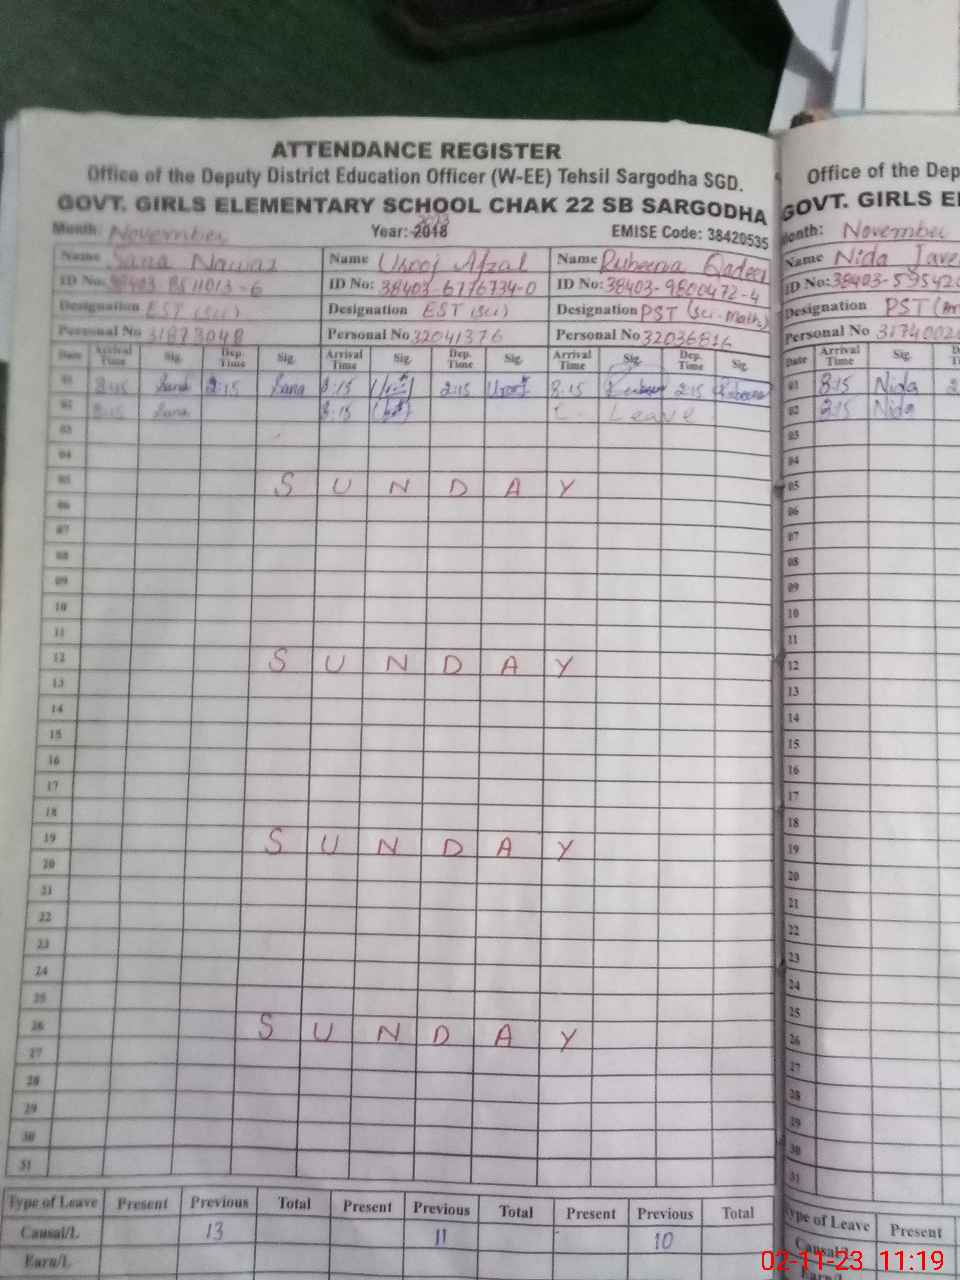 ATTENDANCE REGISTER
Office of the Deputy District Education Officer (W-EE) Tehsil Sargodha SGD.
GOVT. GIRLS ELEMENTARY SCHOOL CHAK 22 SB SARGODHA
Month: November Year: 2018 2023 EMISE Code: 38420535
Name Sana Nawaz Name Urooj Afzal Name Rubeena Qadeer
ID No: 38403 ID No: 38403-6776734-0 ID No: 38403-9800472-4
Designation EST (sci) Designation EST (sci) Designation PST (sci-math)
Personal No 31873048 Personal No 32041376 Personal No 32036816
Date Arrival Time Sig. Dep. Time Sig. Arrival Time Sig. Dep. Time Sig. Arrival Time Sig. Dep. Time Sig.
01 8:15 Sana 2:15 Sana 8:15 2:15 Urooj 8:15 Rubeena 2:15 Rubeena
02 8:15 Sana 8:15 C. Leave
03
04
05 S U N D A Y
06
07
08
09
10
11
12 S U N D A Y
13
14
15
16
17
18
19 S U N D A Y
20
21
22
23
24
25
26 S U N D A Y
27
28
29
30
31
Type of Leave Present Previous Total Present Previous Total Present Previous Total
Causal/L 13 11 10
Earn/L
Office of the Dep
GOVT. GIRLS E
Month: November
Name Nida Jave
ID No: 38403-595420
Designation PST
Personal No 3174002
Date Arrival Time Sig.
01 8:15 Nida 2
02 8:15 Nida
03
04
05
06
07
08
09
10
11
12
13
14
15
16
17
18
19
20
21
22
23
24
25
26
27
28
29
30
31
Type of Leave Present
Causal/L
Earn/L
02-11-23 11:19